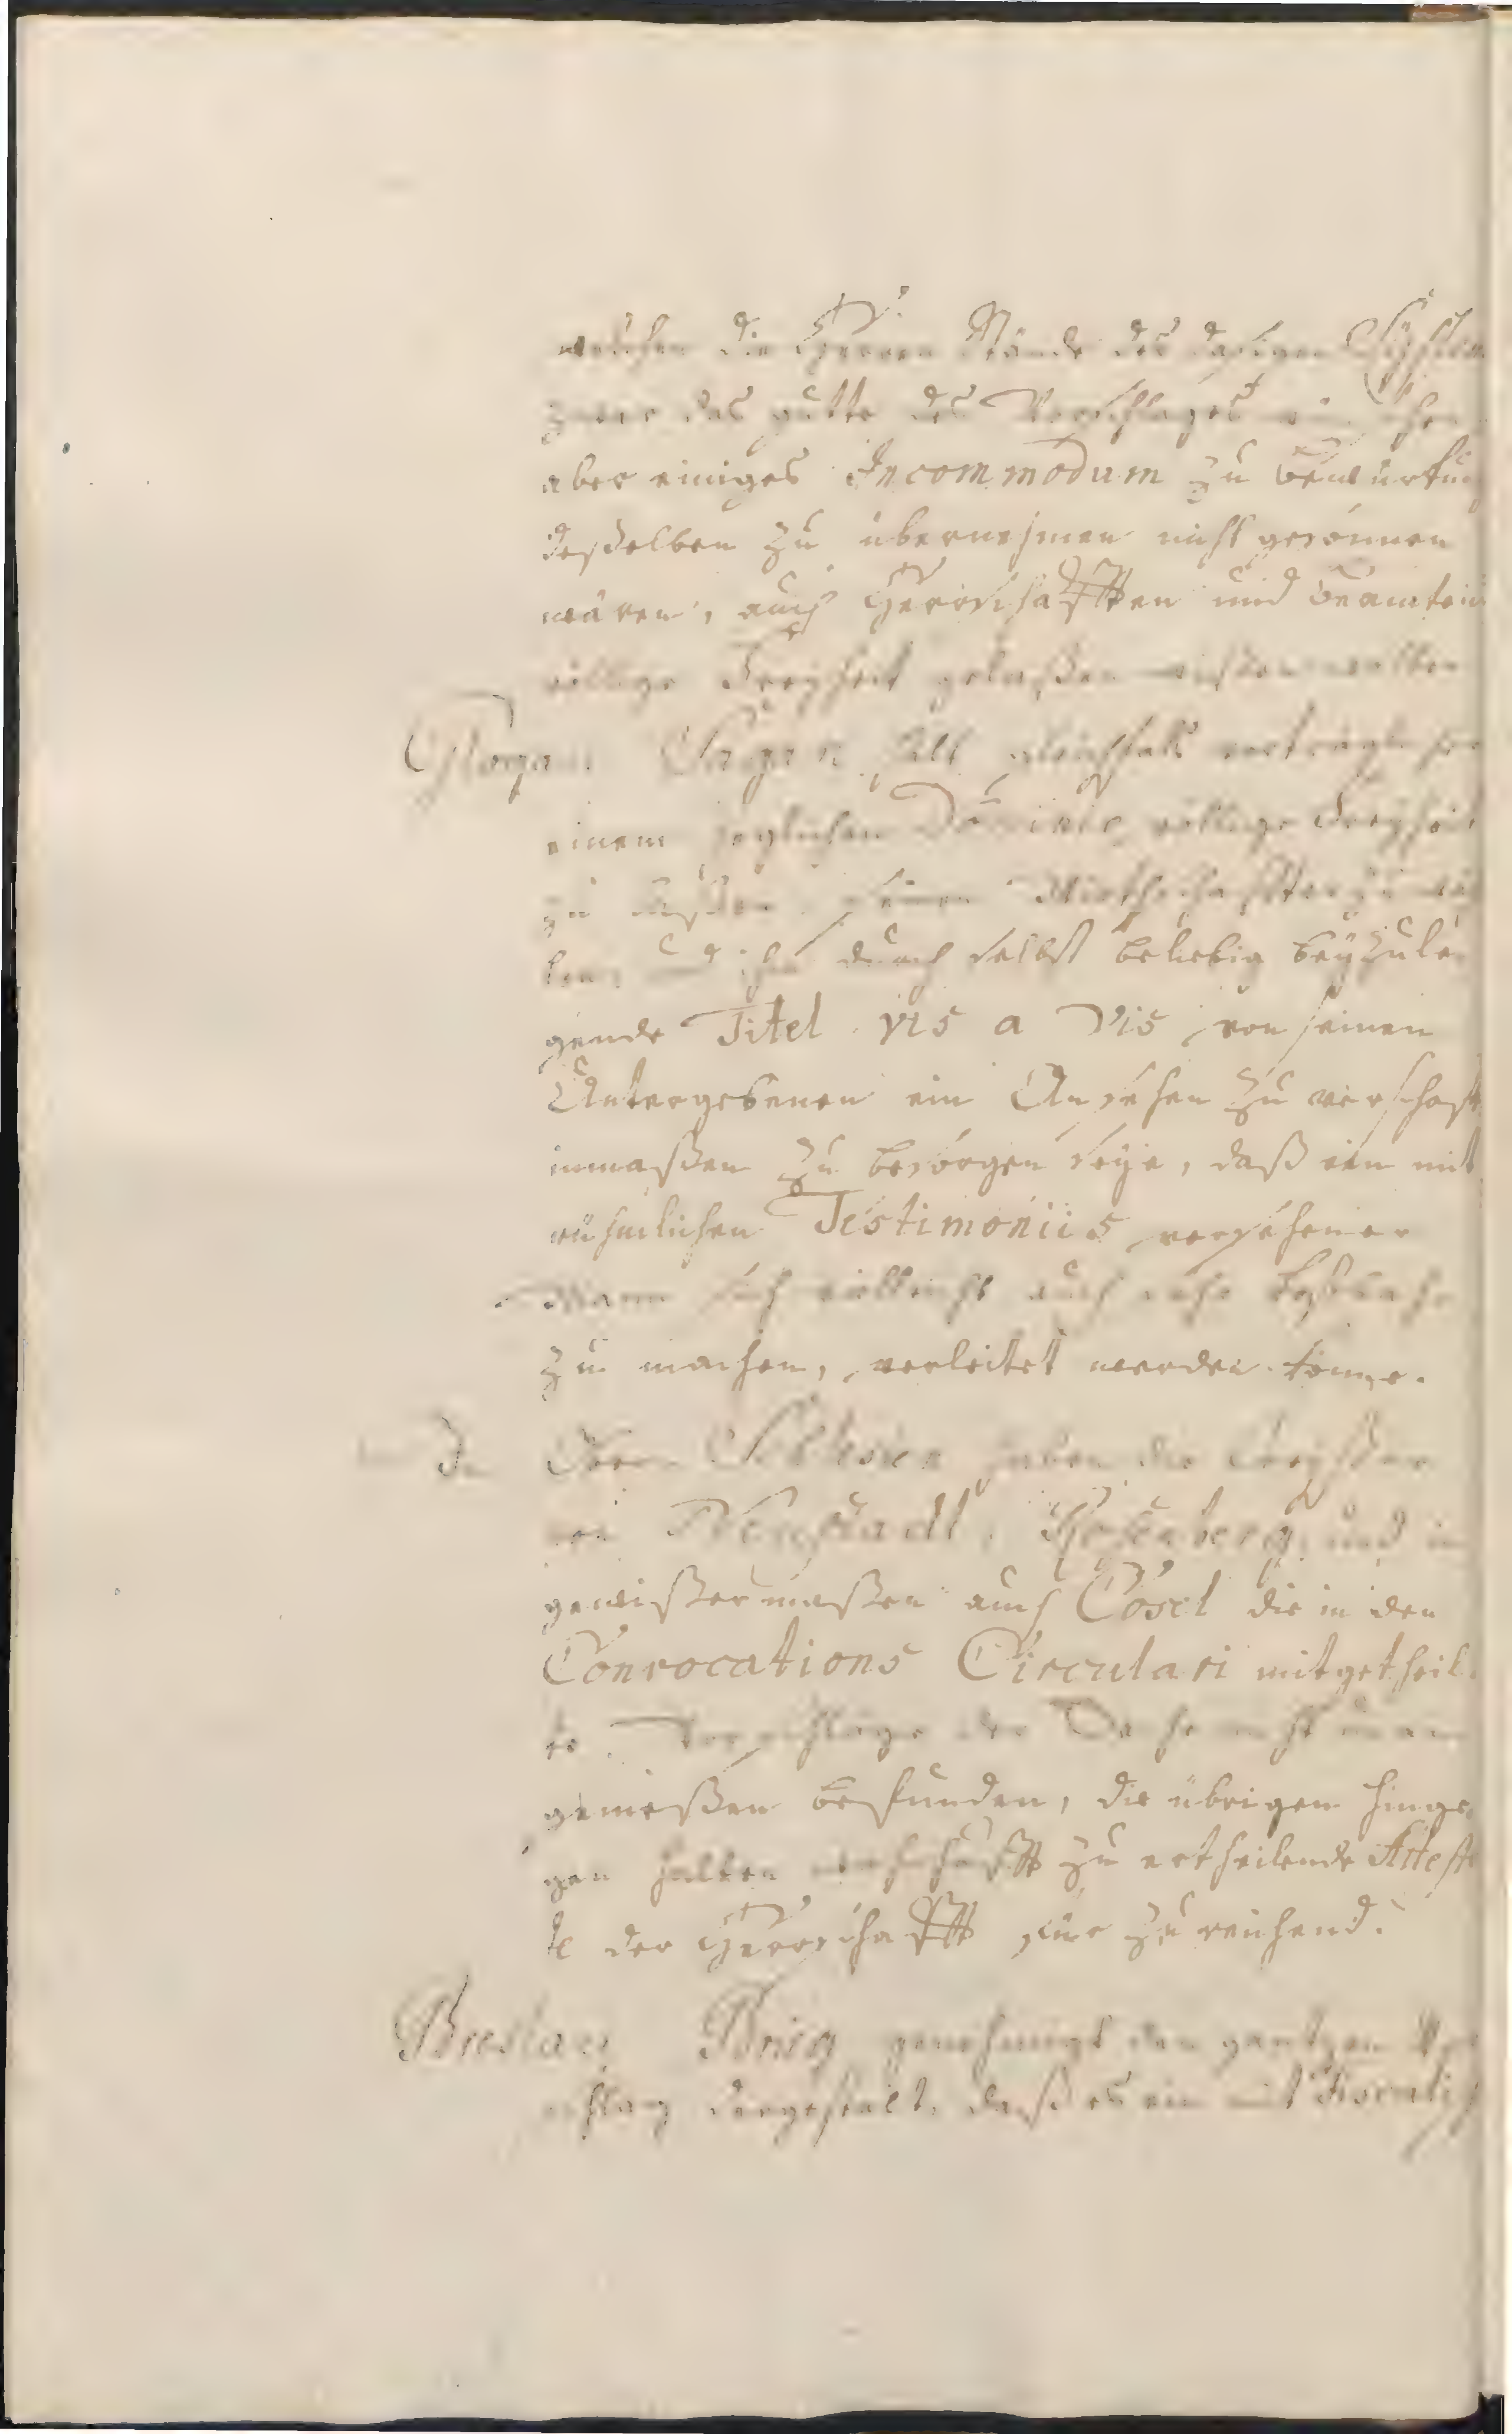 welchen die Herren Stände des dasigen
zwar das gutte des Vorschlages
aber einiges Incommodum zu bewürkung
deßelben zu übernehmen nicht gesonnen
wären, auch Herrschafften und Beamten
völlige Freyheit gelaßen wollten
Glogau Sagan hält gleichfalls
einem jeglichen Dominio völlige Freyheit
zu laßen, seinen Wirthschaffter zu
len, durch selbst beliebig beyzule
gende Titel vis a vis von seinen
Untergebenen ein Ansehen zu verschaff
inmaßen zu besorgen seye, daß ein mit
rühmlichen Testimoniis versehener
Mann sich vielleicht auch sehr kostbahr
zu machen, verleitet werden könne.
Ober Schlesien haben die Creyße
von Neustadt, Rosenberg, und
gewißermaßen auch Cosel die in den
Convocations Circulari mitgetheil
te Vorschläge der Sache nicht
gemeßen befunden, die übrigen hinge
gen halten zu ertheilende Atteste
der Herrschafft zureichend.
Breslau Brieg genehmigt den gantzen Vor
schlag dergestalt, daß es ein mit